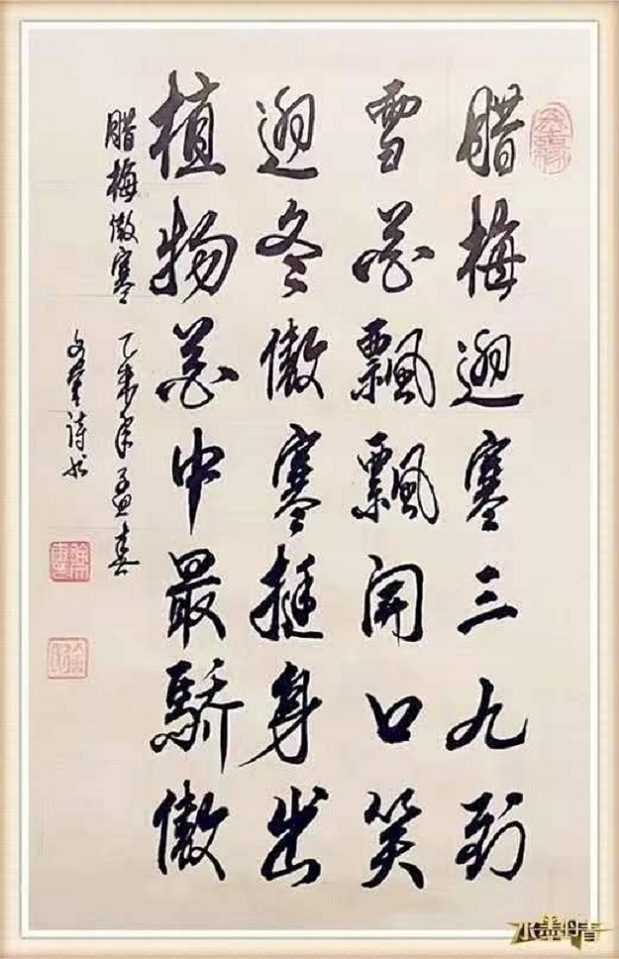 腊梅迎寒三九到
雪花飘飘开口笑
迎冬傲寒挺身出
植物花中最骄傲
腊梅傲寒 乙未年孟春
诗书
水墨丹青